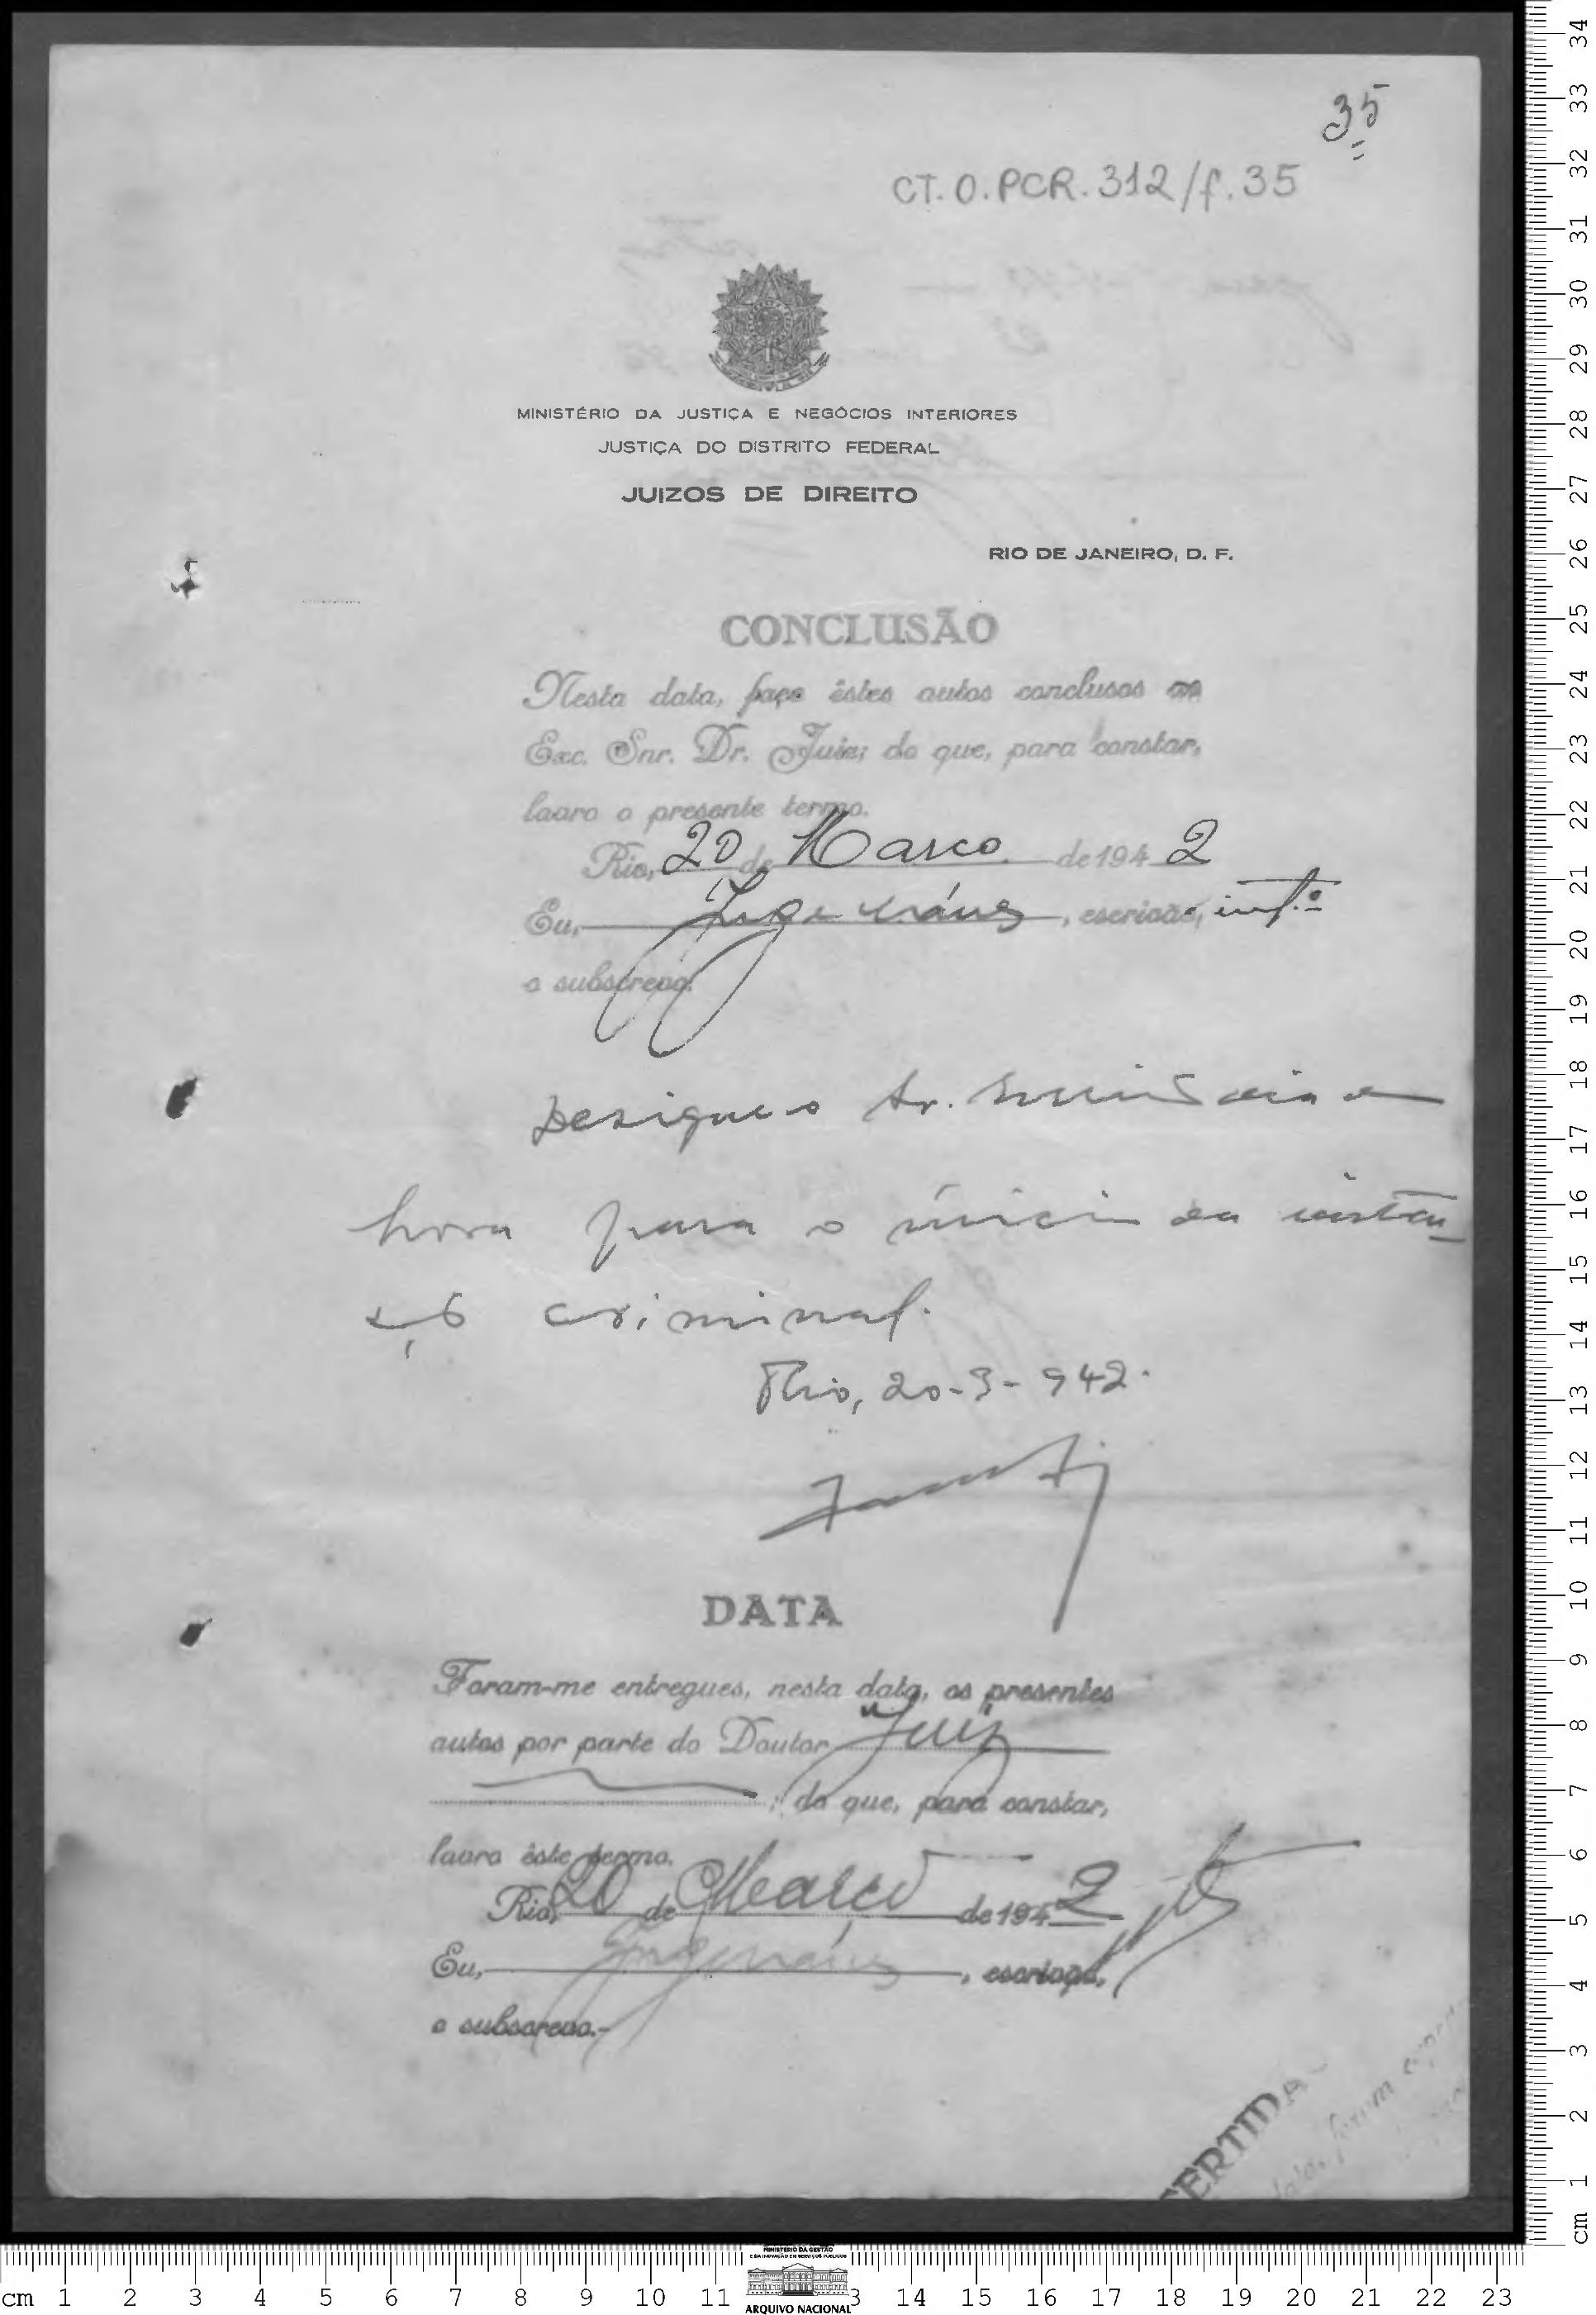 35
CT.O.PCR.312/f.35
MINISTÉRIO DA JUSTIÇA E NEGÓCIOS INTERIORES
JUSTIÇA DO DISTRITO FEDERAL
JUIZOS DE DIREITO
RIO DE JANEIRO, D. F.
CONCLUSÃO
Nesta data, faço êstes autos conclusos ao
Exc. Snr. Dr. Juiz; do que, para constar,
lavro o presente termo.
Rio, 20 de Marco de 194 2
Eu, , escrivão, int.º
o subscrevo.
Designe o Sr. dia e
hora para o início da
criminal.
Rio, 20-3-942.
DATA
Foram-me entregues, nesta data, os presentes
autos por parte do Doutor Juiz
; do que, para constar,
lavro êste termo.
Rio, 20 de Março de 194 2
Eu, , escrivão,
o subscrevo.-
CERTIDÃ
foram
cm 1 2 3 4 5 6 7 8 9 10 11 3 14 15 16 17 18 19 20 21 22 23
MINISTÉRIO DA GESTÃO
E DA INOVAÇÃO EM SERVIÇOS PÚBLICOS
ARQUIVO NACIONAL
cm 1 2 3 4 5 6 7 8 9 10 11 12 13 14 15 16 17 18 19 20 21 22 23 24 25 26 27 28 29 30 31 32 33 34